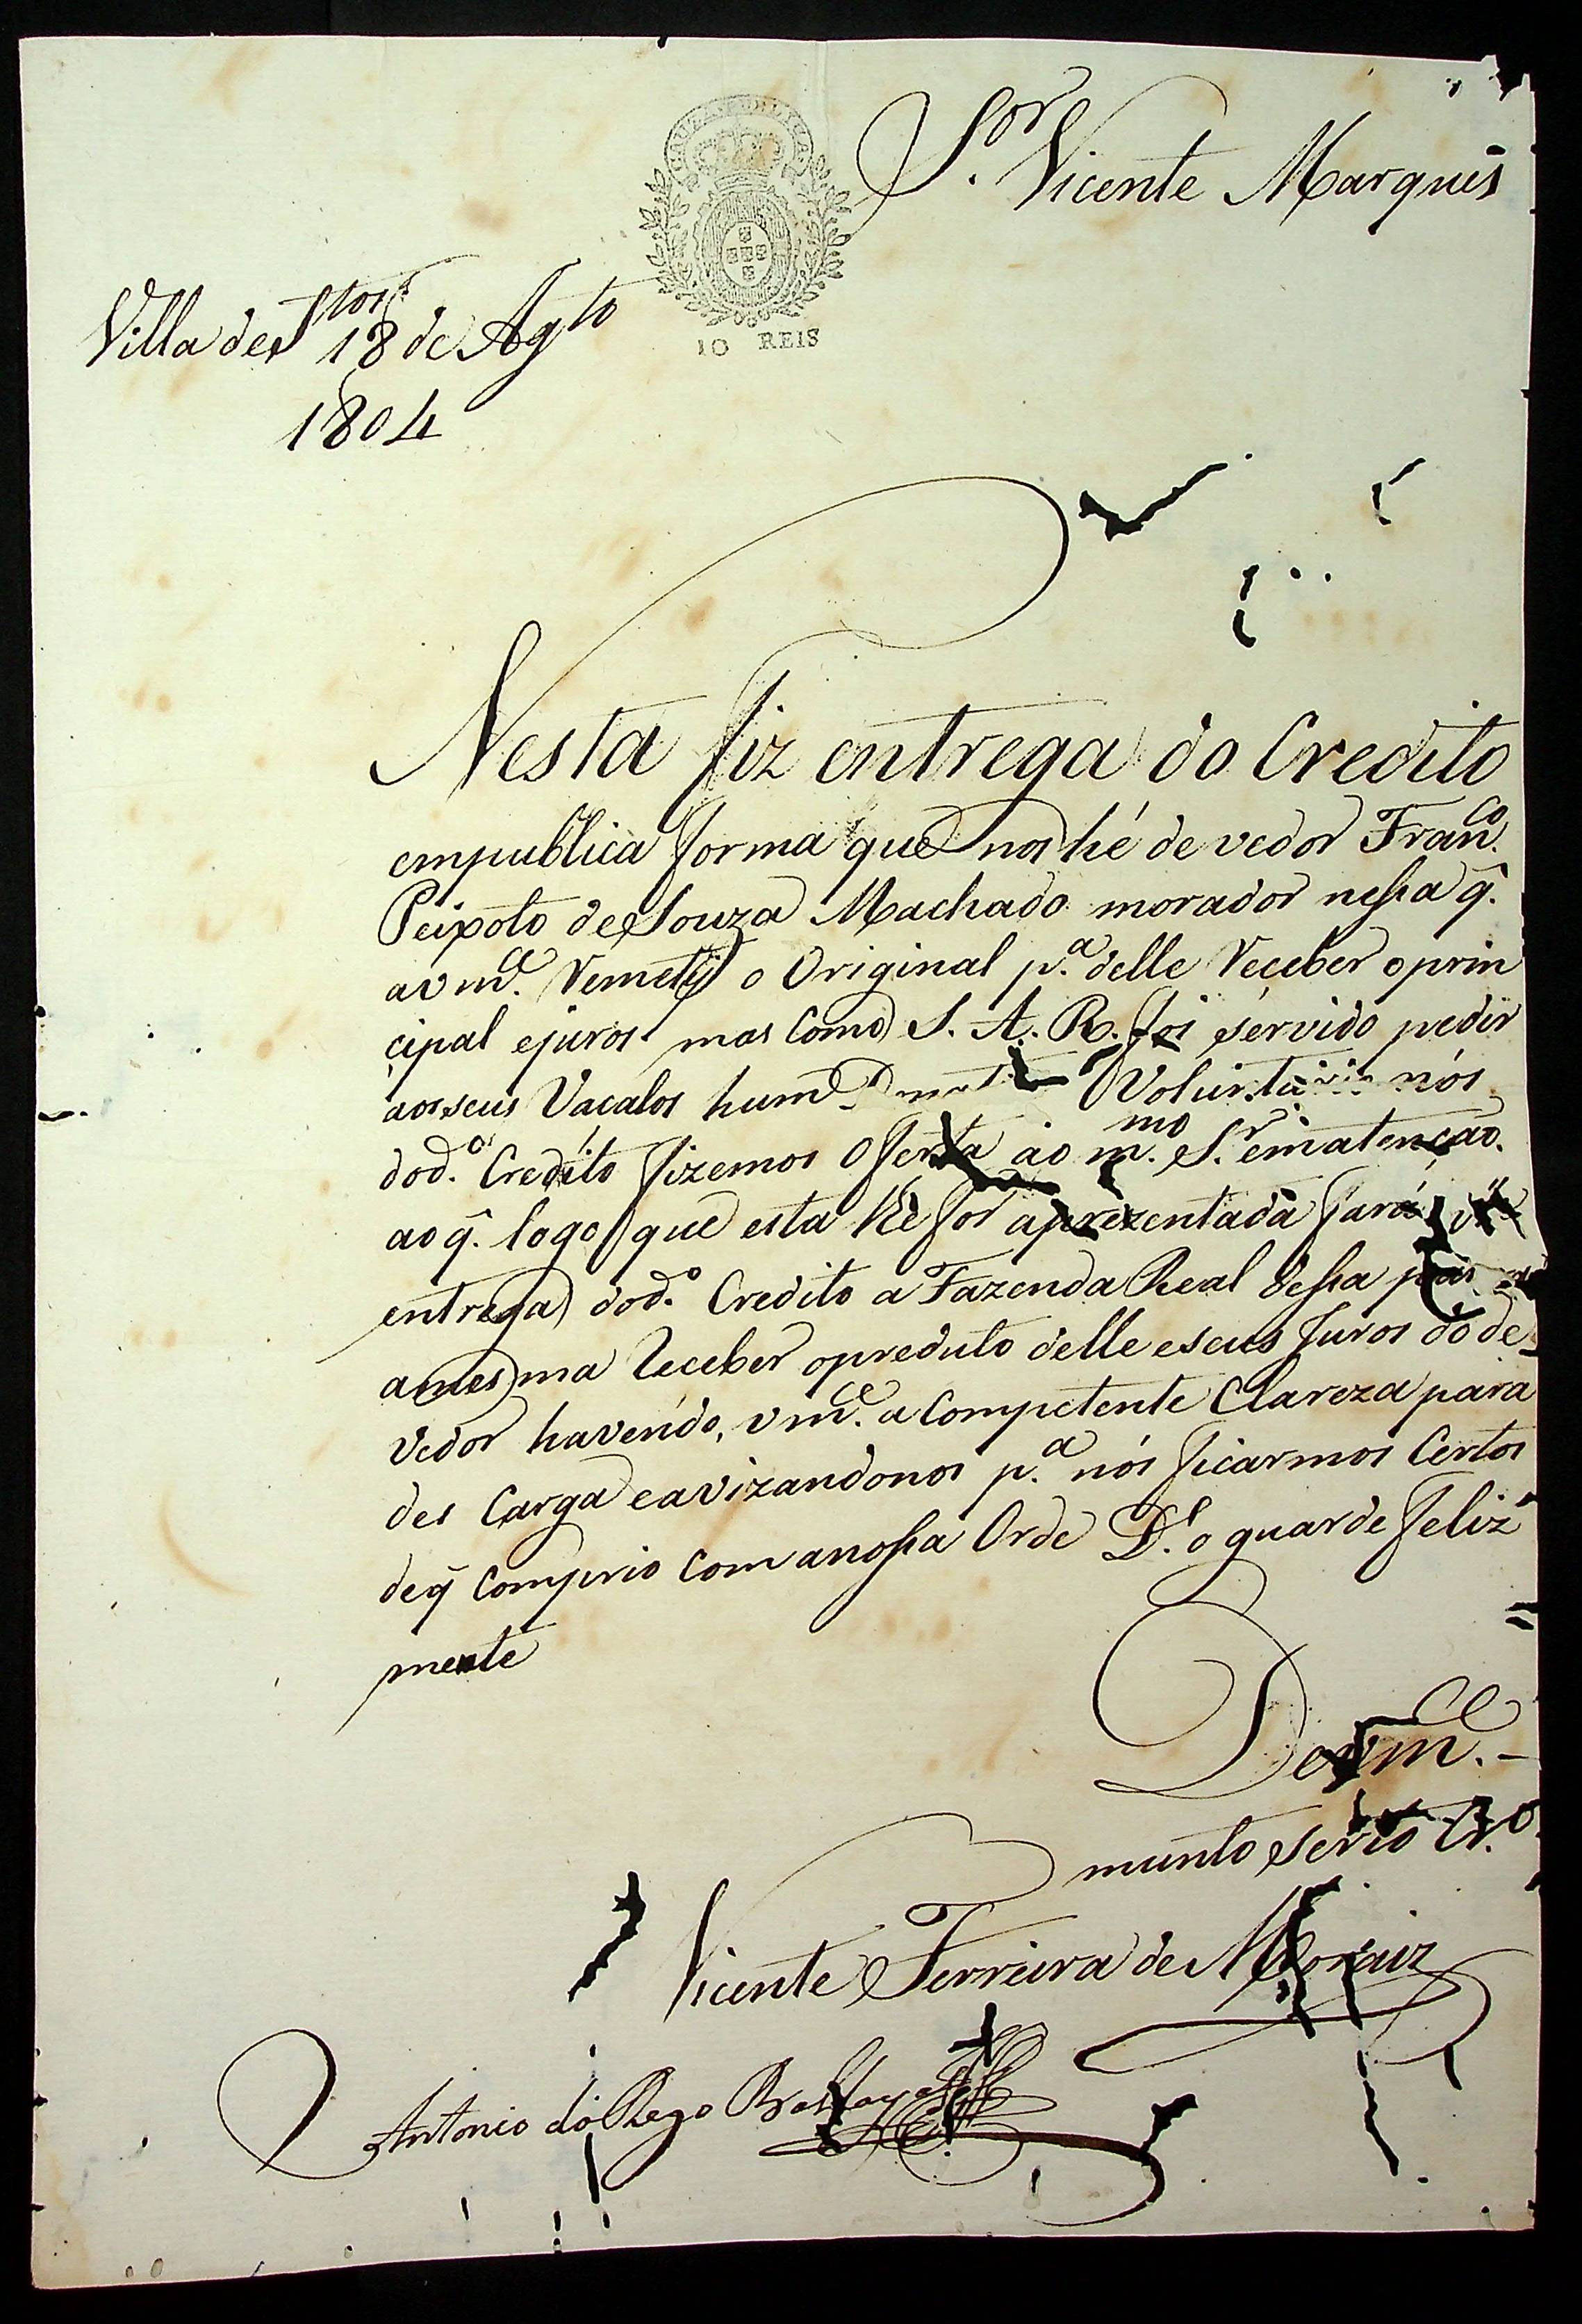 S.or Vicente Marques
CAUZA PUBLICA
10 REIS
Villa de S.tos 18 de Ag.to
1804
Nesta fiz entrega do Credito
empublica forma que nos hé devedor Fran.co
Peixoto de Souza Machado morador nessa q̃.
a vm.ce Remeteÿ o Original p.a delle Receber oprin
cipal ejuros mas como S. A. R. foi servido pedir
aos seus Vacalos hum Voluntario nós
dod.o Credito fizemos Oferta ào m.mo S.r ematenção.
ao q̃. logo que esta lhe for aprezentada fará
entrega dod.o Credito a Fazenda Real dessa para
amesma Receber opreduto delle eseus Juros do de-
vedor havendo, vm.ce a Competente Clareza para
des Carga eavizandonos p.a nós ficarmos Certos
deq̃ Comprio com anossa Orde D.s o guarde feliz
mente
De vm.ce
munto servo Cr.o
Vicente Ferreira de Moraiz
Antonio do Rego